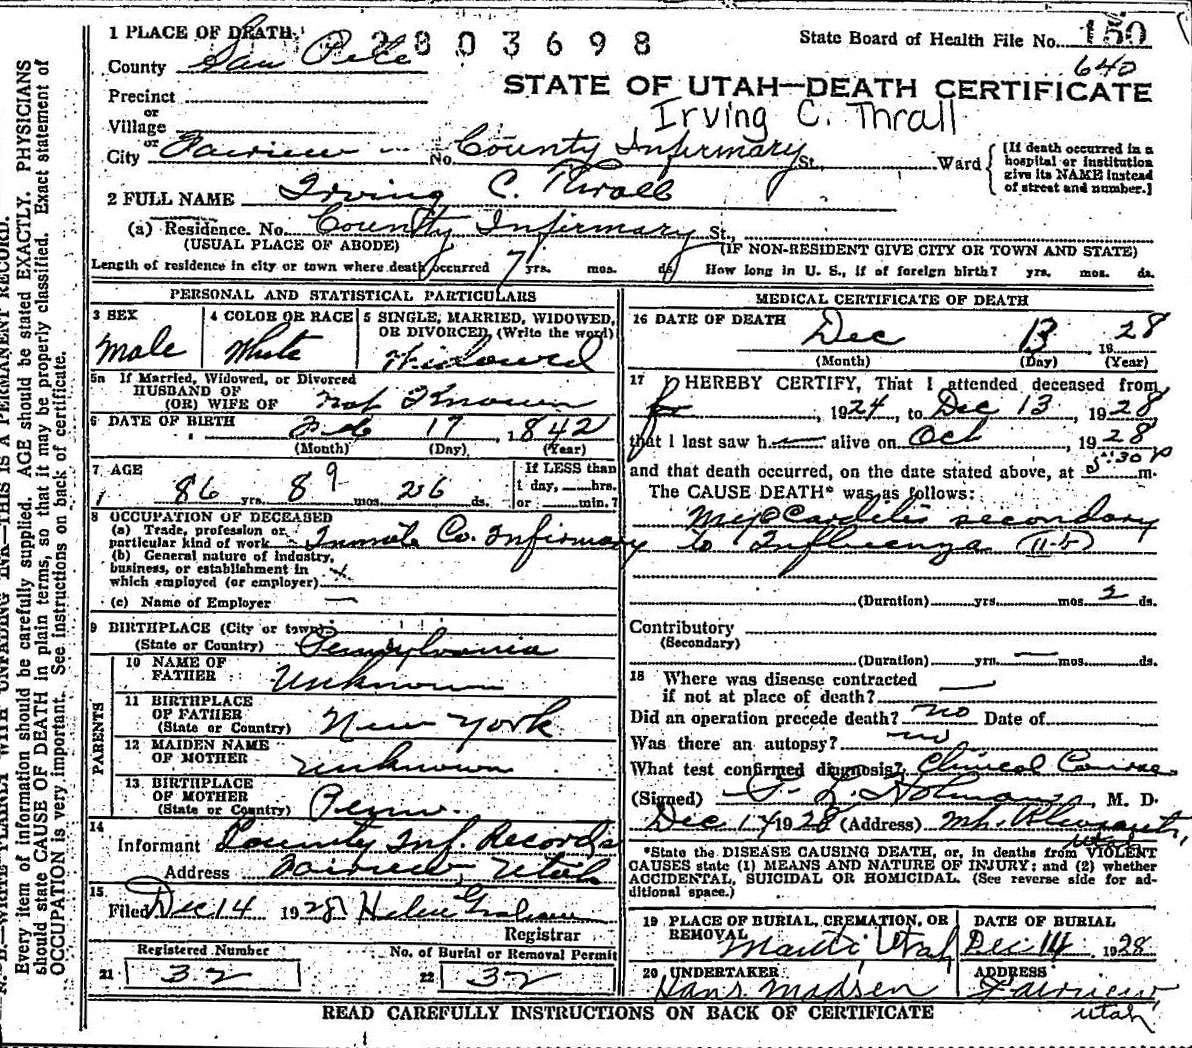 1 PLACE OF DEATH
2803698
State Board of Health File No. 150
640
County San Pete
STATE OF UTAH—DEATH CERTIFICATE
Precinct
or
Village
Irving C. Thrall
or
City Fairview No. County Infirmary St. Ward
[If death occurred in a
hospital or institution
give its NAME instead
of street and number.]
2 FULL NAME Irving C. Thrall
(a) Residence. No. County Infirmary St.,
(USUAL PLACE OF ABODE) (IF NON-RESIDENT GIVE CITY OR TOWN AND STATE)
Length of residence in city or town where death occurred 7 yrs. mos. ds. How long in U. S., if of foreign birth? yrs. mos. ds.
PERSONAL AND STATISTICAL PARTICULARS
3 SEX 4 COLOR OR RACE 5 SINGLE, MARRIED, WIDOWED,
OR DIVORCED, (Write the word)
Male White Widowed
5a If Married, Widowed, or Divorced
HUSBAND OF
(OR) WIFE OF Not Known
6 DATE OF BIRTH Feb 17 1842
(Month) (Day) (Year)
7 AGE If LESS than
1 day, hrs.
86 yrs. 8 9 mos. 26 ds. or min.?
8 OCCUPATION OF DECEASED
(a) Trade, profession or
particular kind of work Inmate Co. Infirmary
(b) General nature of industry,
business, or establishment in
which employed (or employer)
(c) Name of Employer —
9 BIRTHPLACE (City or town)
(State or Country) Pennsylvania
PARENTS
10 NAME OF
FATHER Unknown
11 BIRTHPLACE
OF FATHER
(State or Country) New York
12 MAIDEN NAME
OF MOTHER Unknown
13 BIRTHPLACE
OF MOTHER
(State or Country) Penn.
14
Informant County Inf. Records
Address Fairview, Utah
15
Filed Dec 14 1928 Helen Graham
Registrar
Registered Number No. of Burial or Removal Permit
21 32 22 32
MEDICAL CERTIFICATE OF DEATH
16 DATE OF DEATH Dec 13 1928
(Month) (Day) (Year)
17 I HEREBY CERTIFY, That I attended deceased from
1924, to Dec 13, 1928
that I last saw h alive on Oct, 1928
and that death occurred, on the date stated above, at 5:30 p m.
The CAUSE DEATH* was as follows:
Myocarditis secondary
to Influenza (11-b)
(Duration) yrs. mos. 2 ds.
Contributory
(Secondary)
(Duration) yrs. — mos. ds.
18 Where was disease contracted
if not at place of death? —
Did an operation precede death? no Date of
Was there an autopsy? no
What test confirmed diagnosis? Clinical Course
(Signed) P. L. Holman, M. D.
Dec 14 1928 (Address) Mt. Pleasant,
Utah
*State the DISEASE CAUSING DEATH, or, in deaths from VIOLENT
CAUSES state (1) MEANS AND NATURE OF INJURY; and (2) whether
ACCIDENTAL, SUICIDAL OR HOMICIDAL. (See reverse side for ad-
ditional space.)
19 PLACE OF BURIAL, CREMATION, OR
REMOVAL DATE OF BURIAL
Manti Utah Dec 14 1928
20 UNDERTAKER ADDRESS
Hans Madsen Fairview,
Utah
READ CAREFULLY INSTRUCTIONS ON BACK OF CERTIFICATE
N. B.—WRITE PLAINLY WITH UNFADING INK—THIS IS A PERMANENT RECORD.
Every item of information should be carefully supplied. AGE should be stated EXACTLY. PHYSICIANS
should state CAUSE OF DEATH in plain terms, so that it may be properly classified. Exact statement of
OCCUPATION is very important. See instructions on back of certificate.